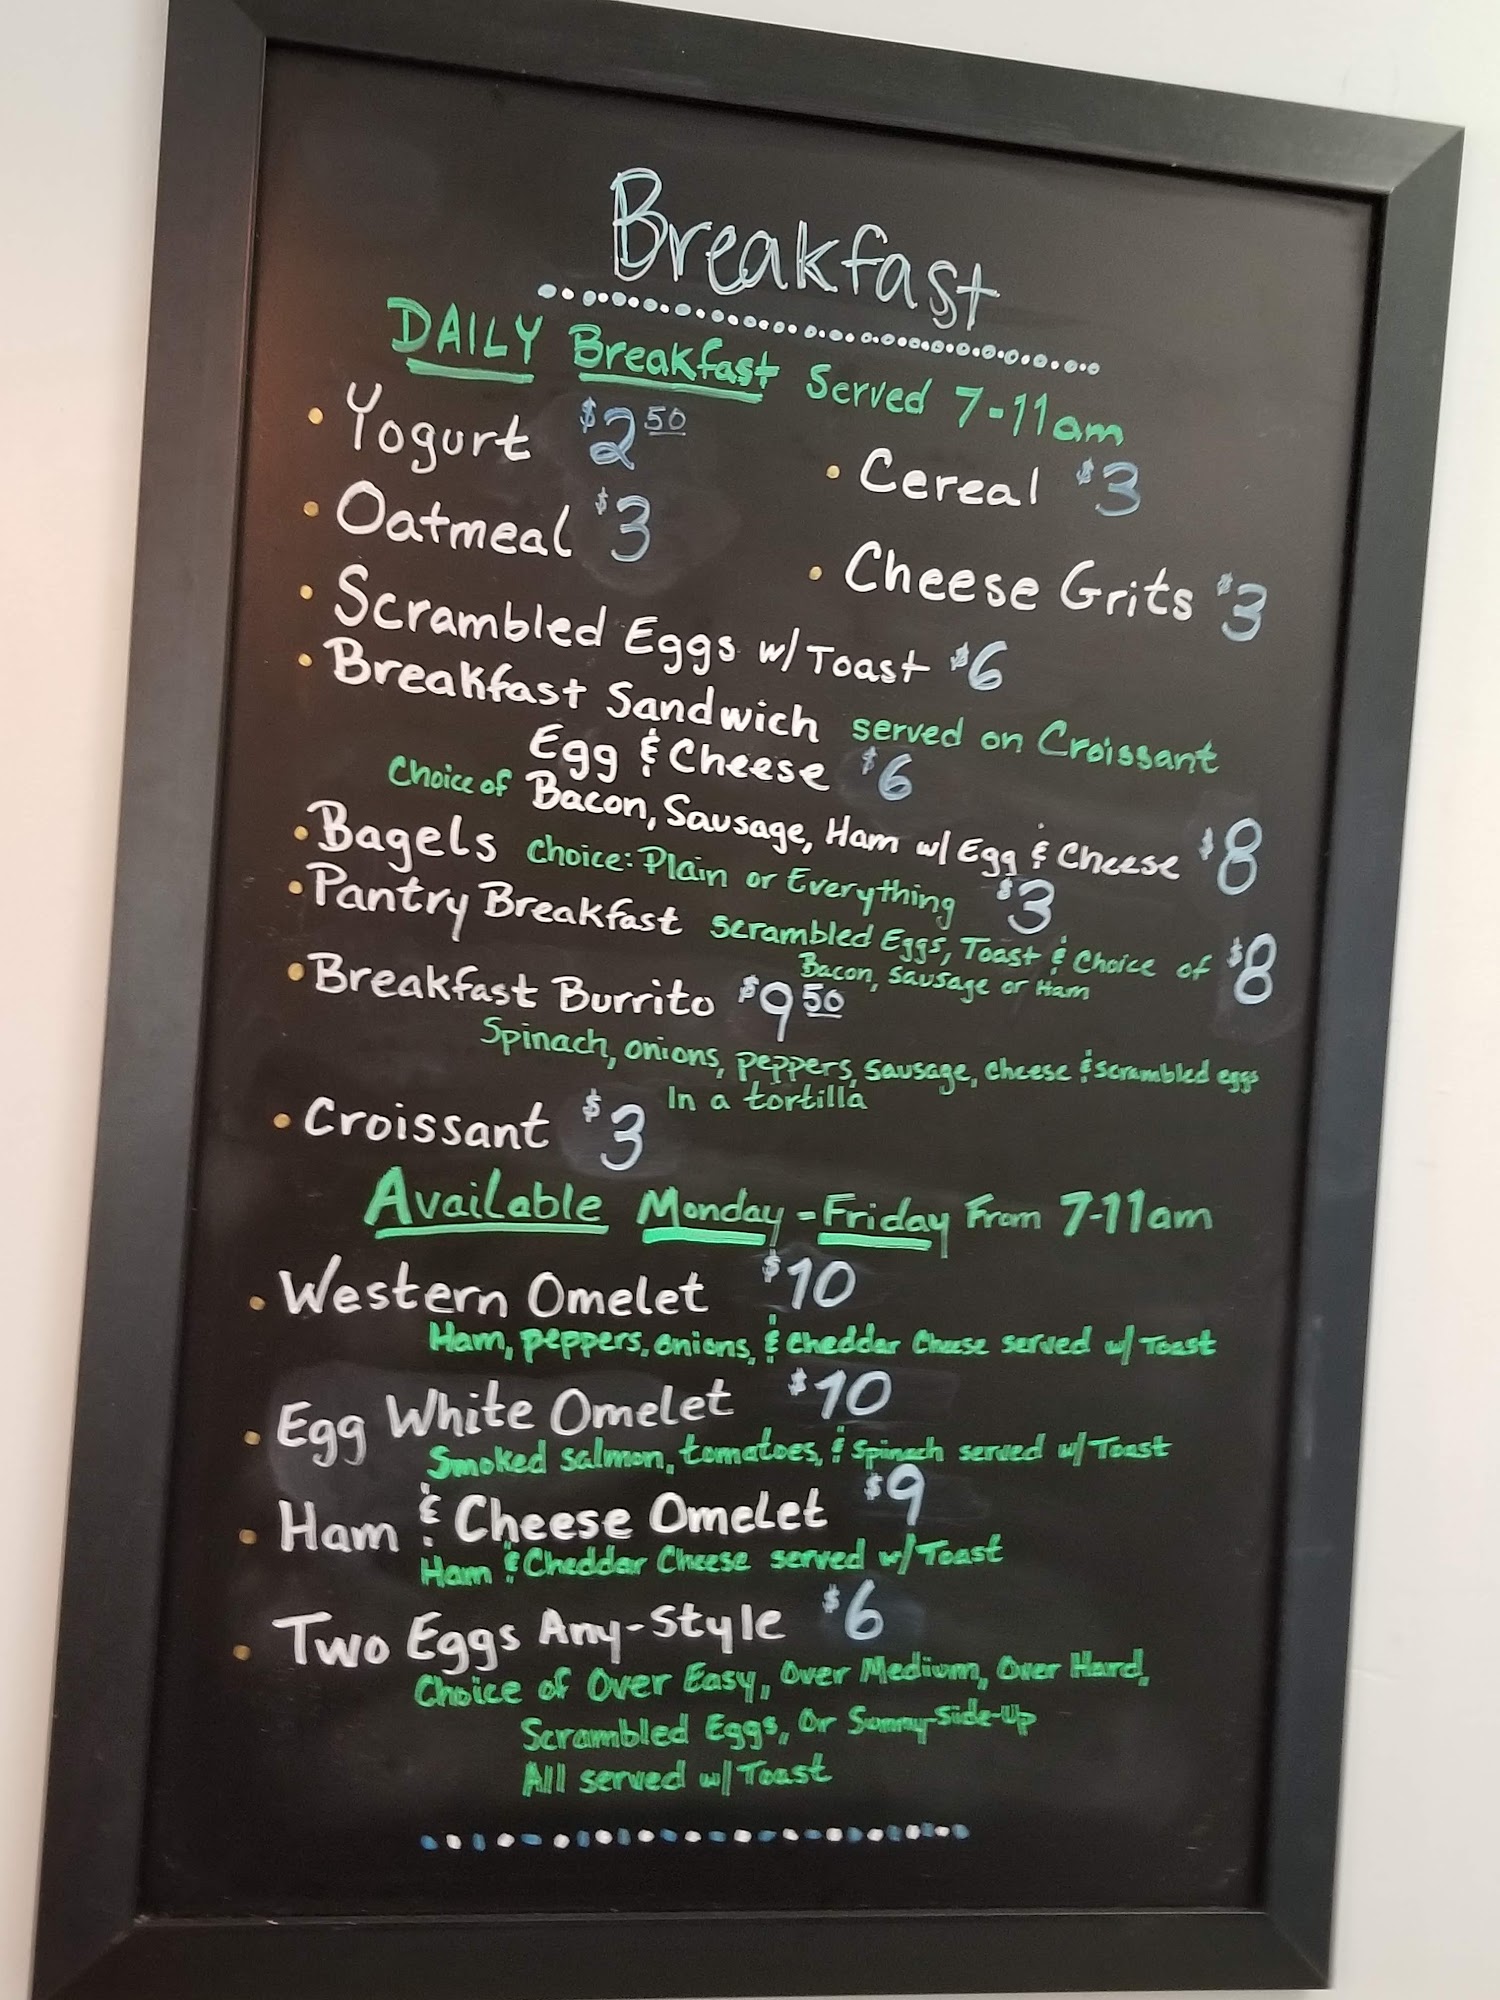 Breakfast
DAILY Breakfast Served 7-11am
• Yogurt $2 50
• Cereal $3
• Oatmeal $3
• Cheese Grits $3
• Scrambled Eggs w/ Toast $6
• Breakfast Sandwich served on Croissant
Egg & Cheese $6
Choice of Bacon, Sausage, Ham w/ Egg & Cheese $8
• Bagels Choice: Plain or Everything $3
• Pantry Breakfast scrambled Eggs, Toast & Choice of $8
Bacon, Sausage or Ham
• Breakfast Burrito $9 50
Spinach, onions, peppers, sausage, cheese & scrambled eggs
In a tortilla
• Croissant $3
Available Monday - Friday From 7-11am
• Western Omelet $10
Ham, peppers, onions, & Cheddar Cheese served w/ Toast
• Egg White Omelet $10
Smoked salmon, tomatoes, & Spinach served w/ Toast
• Ham & Cheese Omelet $9
Ham & Cheddar Cheese served w/ Toast
• Two Eggs Any-Style $6
Choice of Over Easy, Over Medium, Over Hard,
Scrambled Eggs, Or Sunny-Side-Up
All served w/ Toast